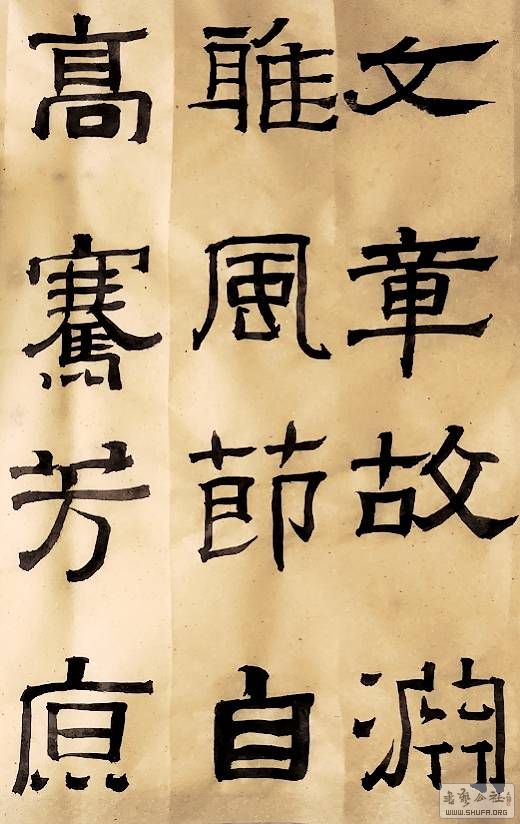 文章故淵
雅風節自
高騫芳原
書藝公社
WWW.SHUFA.ORG